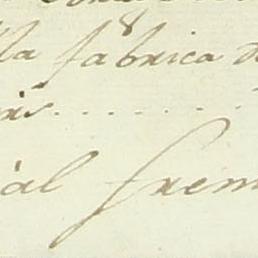 lla fabrica d
ris..........
al frem